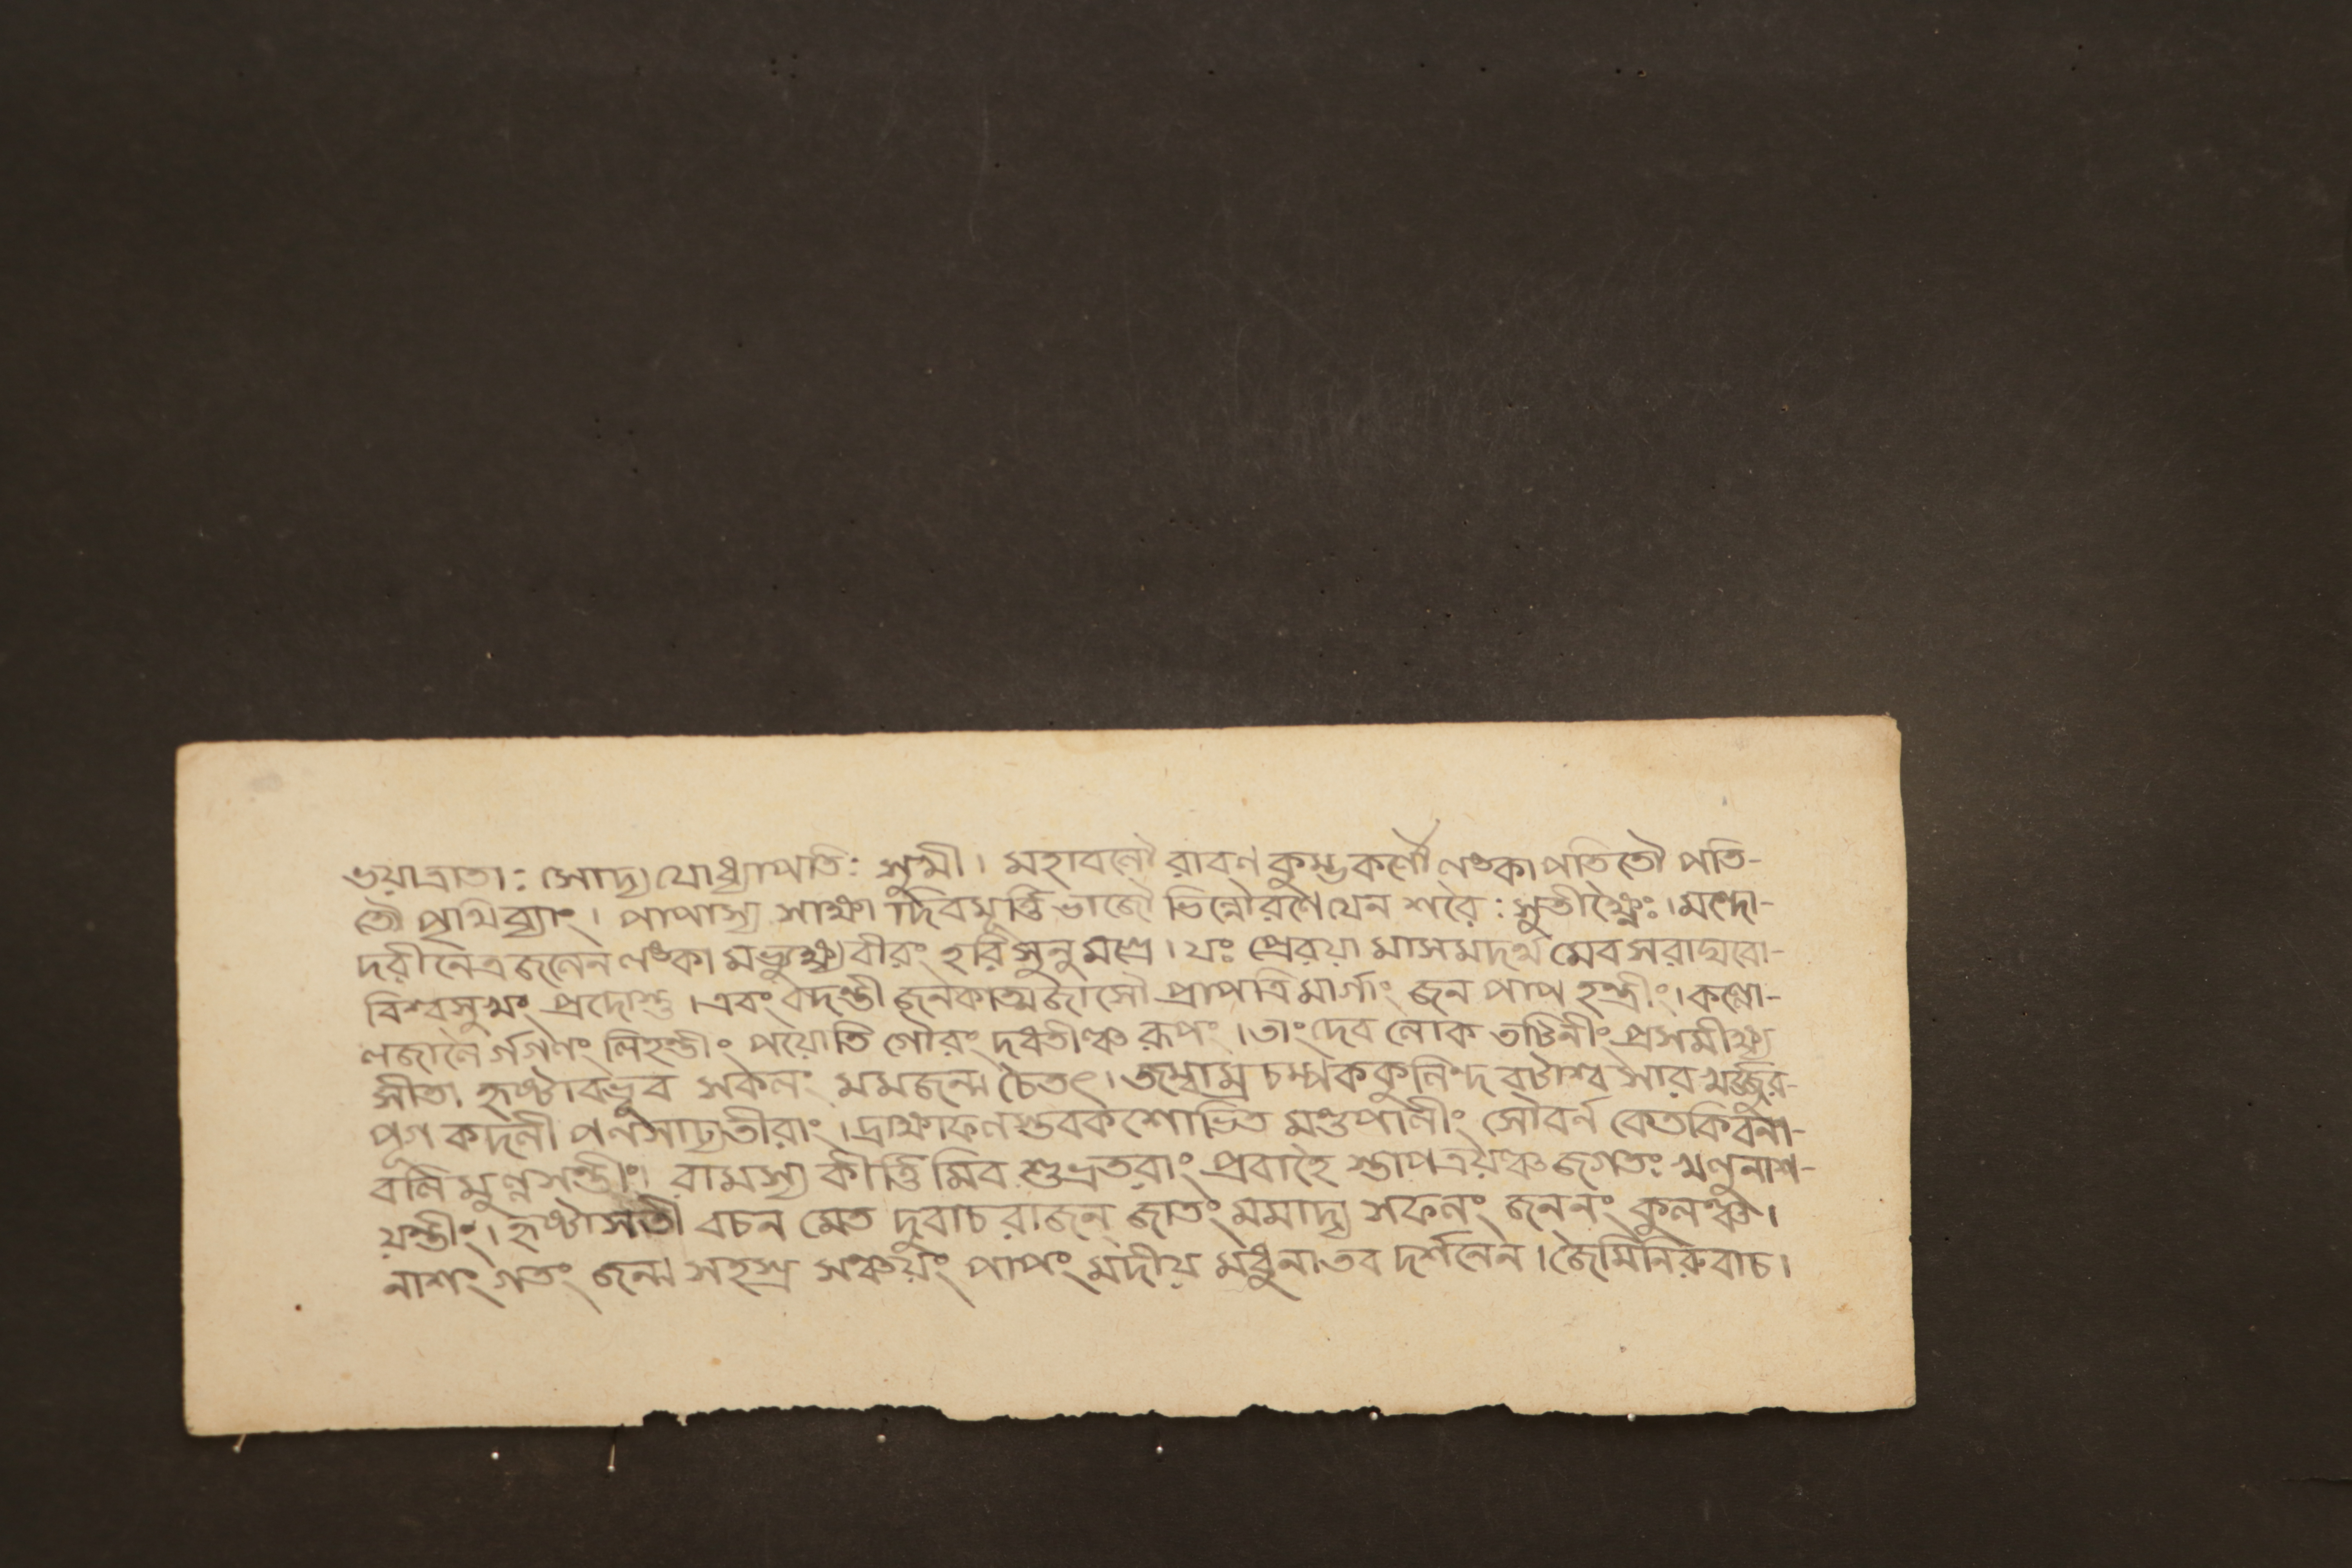 ভয়াত্রাতাঃ সোদ্য যোধ্যাপতিঃ সুখী। মহাবলৌ রাবণ কুম্ভকর্ণৌ লঙ্কাপতিতৌ পতি-
তৌ পৃথিব্যাং। পাপাস্য সাক্ষা দিবমূর্ত্তি ভাজৌ ভিন্নৌরণেযেন শরৈঃ সুতীক্ষ্ণৈঃ। মন্দো-
দরীনেত্রজলেন লঙ্কা মভ্যুক্ষ্যবীরং হরিসুনুমগ্রে। যঃ প্রেরয়া মাসমদর্থ মেব সরাঘবো-
বিশ্বসুখং প্রদোস্তু। এবং বদন্তী জনকাত্মজাসৌ প্রাপত্রিমার্গাং জন পাপ হন্ত্রীং। কল্লো-
লজালৈ র্গগণং লিহন্তীং পয়োতি গৌরং দধতীঞ্চ রূপং। তাং দেব লোক তটিনীং প্রসমীক্ষ্য
সীতা হৃষ্টাবভূব সকলং মমজন্ম চৈতৎ। জম্ব্বাম্র চম্পককুলিন্দ বটাশ্ব সার খর্জ্জুর-
পূগ কদলী পনসাঢ্যতীরাং। দ্রাক্ষাফলস্তবকশোভিত মণ্ডপালীং সৌবর্ন কেতকিবনা-
বলি মুল্লসন্তীং। রামস্য কীর্ত্তি মিব শুভ্রতরাং প্রবাহৈ স্তাপত্রয়ঞ্চ জগতঃ খলুনাশ-
য়ন্তীং। হৃষ্টাসতী বচন মেত দুবাচ রাজন্ জাতং মমাদ্য সফলং জননং কুলঞ্চ।
নাশং গতং জন্ম সহস্র সঞ্চয়ং পাপং মদীয় মধুনা তব দর্শনেন। জৈমিনিরুবাচ।